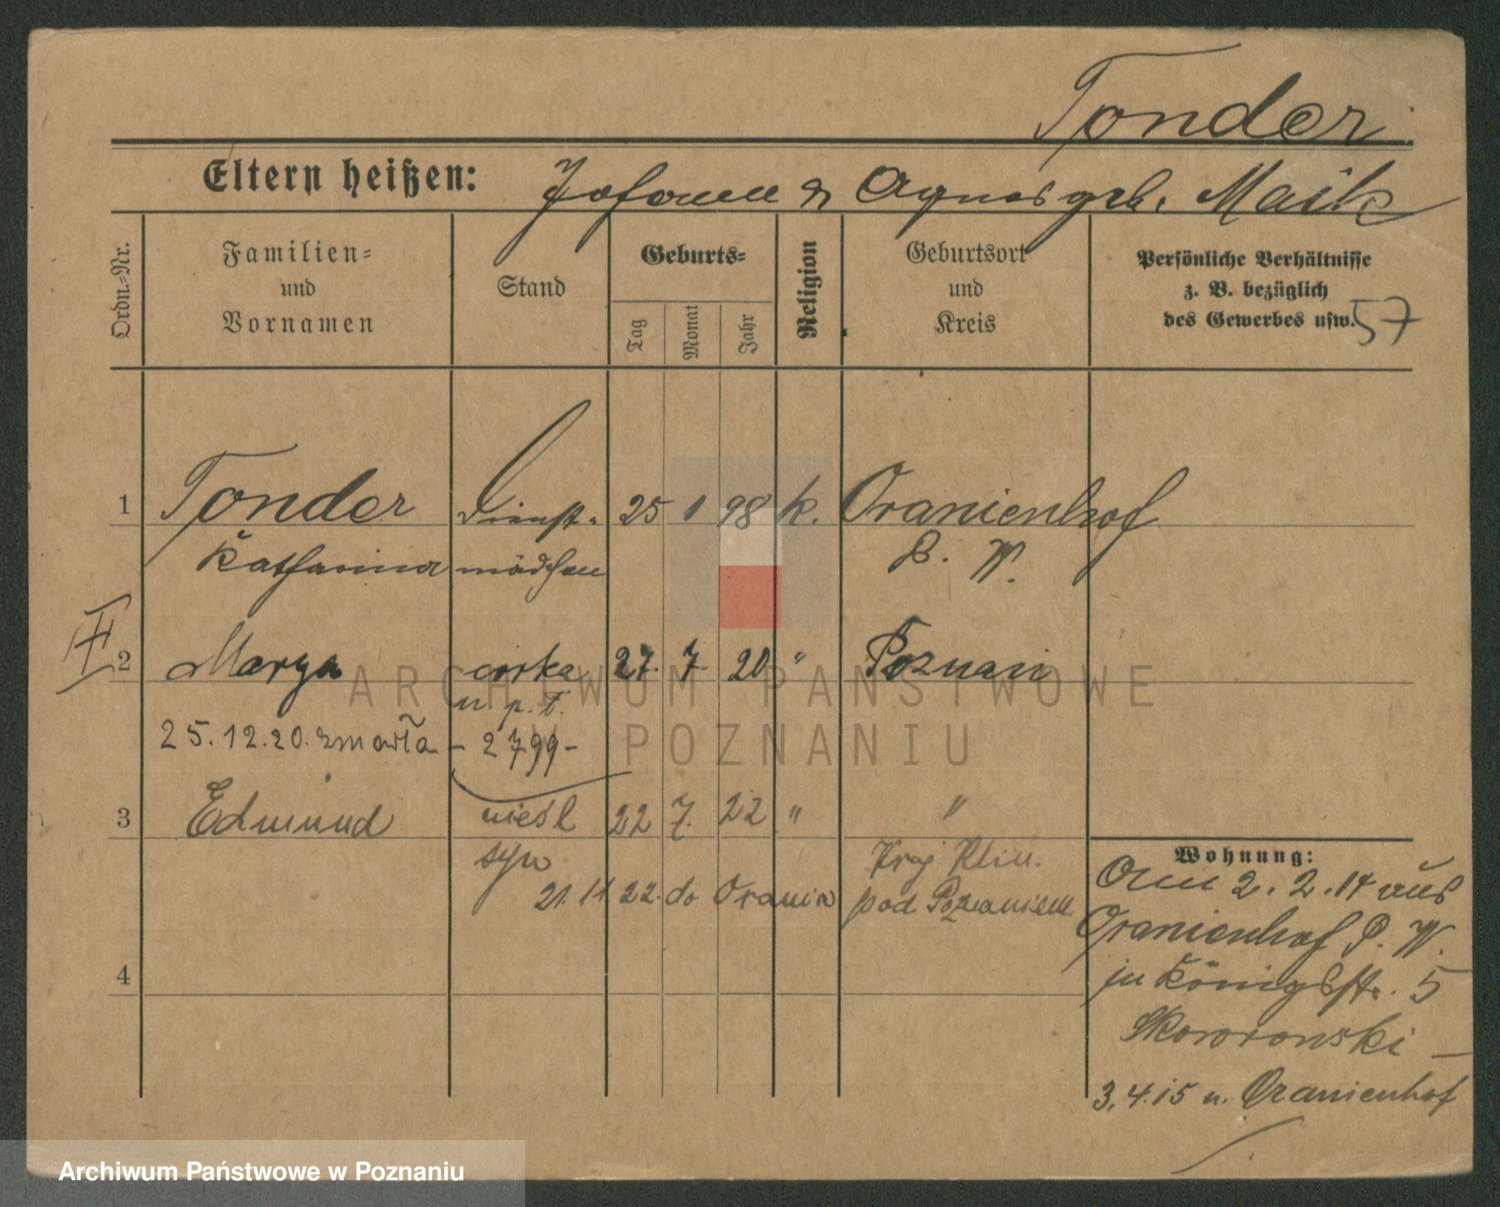 Tonder
Eltern heißen: Johann u Agnes geb. Maik
Ordn.-Nr.
Familien-
und
Vornamen
Stand
Geburts-
Tag
Monat
Jahr
Religion
Geburtsort
und
Kreis
Persönliche Verhältnisse
z. B. bezüglich
des Gewerbes usw.
57
1 Tonder Dienst- 25 1 98 k. Oranienhof
Katharina mädchen P. W.
2 Marya córka 27. 7. 20 " Poznań
n. p. t.
25.12.20. zmarła - 2799-
3 Edmund nieśl 22 7. 22 " "
syn
21. 11 22. do Orania
pod Poznaniem
4
Wohnung:
Am 2. 2. 14 aus
Oranienhof P. W.
in Königstr. 5
Skowronski -
3.4.15 n. Oranienhof
ARCHIWUM PAŃSTWOWE
W POZNANIU
Archiwum Państwowe w Poznaniu